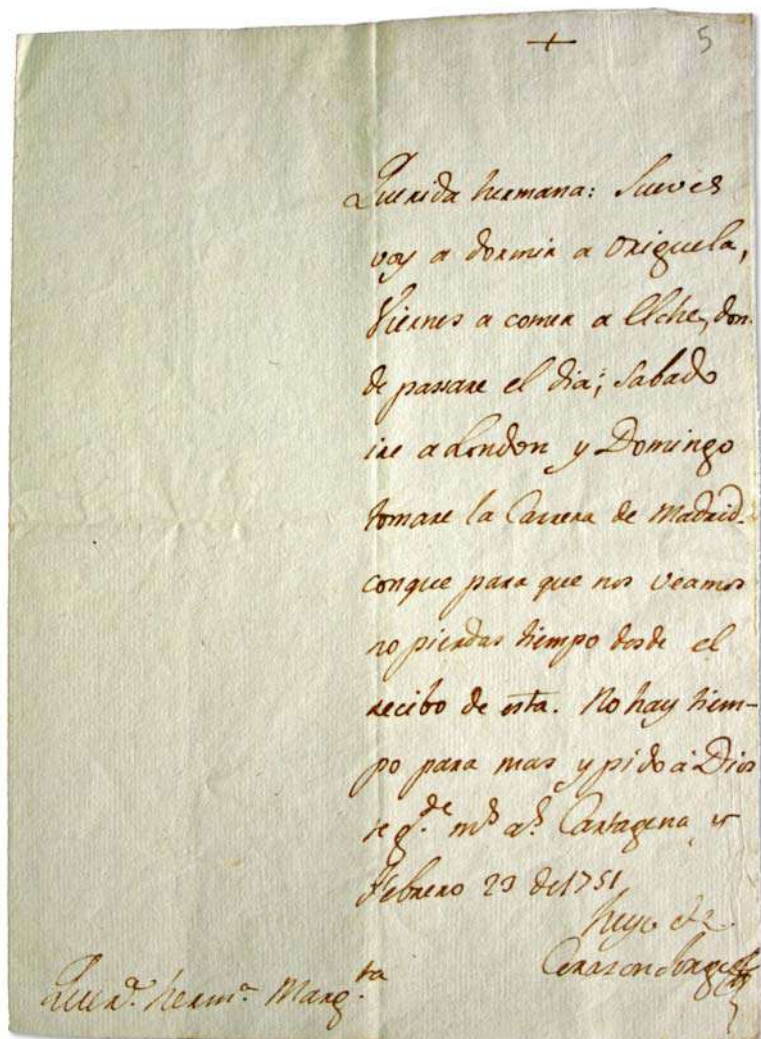 + 5
Querida hermana: Jueves
voy a dormir a Origuela,
Viernes a comer a Elche, don-
de passare el dia; Sabado
ire a London y Domingo
tomare la Carrera de Madrid.
conque para que nos veamos
no pierdas tiempo desde el
recibo de esta. No hay tiem-
po para mas y pido à Dios
te g.de ms as Cartagena y
Febrero 23 de 1751
tuyo de
Corazon Jorge
Quer.da herm.a Marg.ta